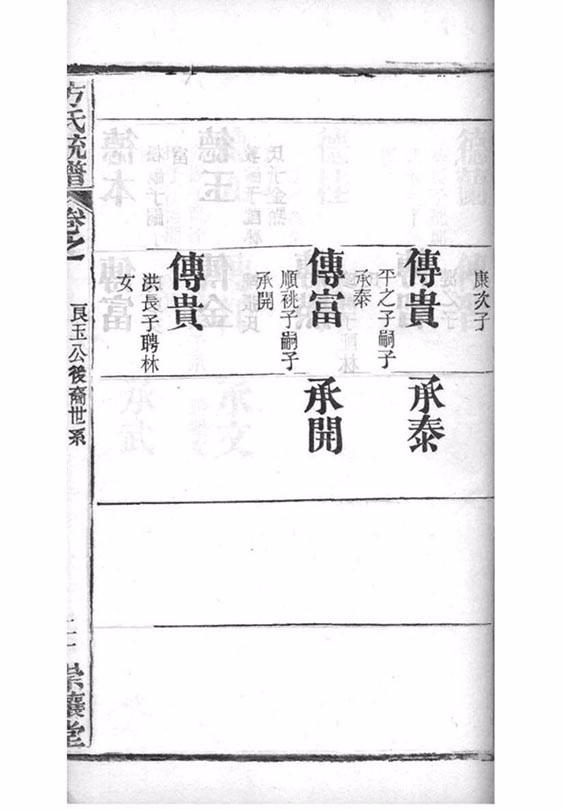 康次子
傳貴
平之子嗣子
承泰
承泰
傳富
順祧子嗣子
承開
承開
傳貴
洪長子聘林
女
方氏統譜
卷之一
良玉公後裔世系
崇讓堂